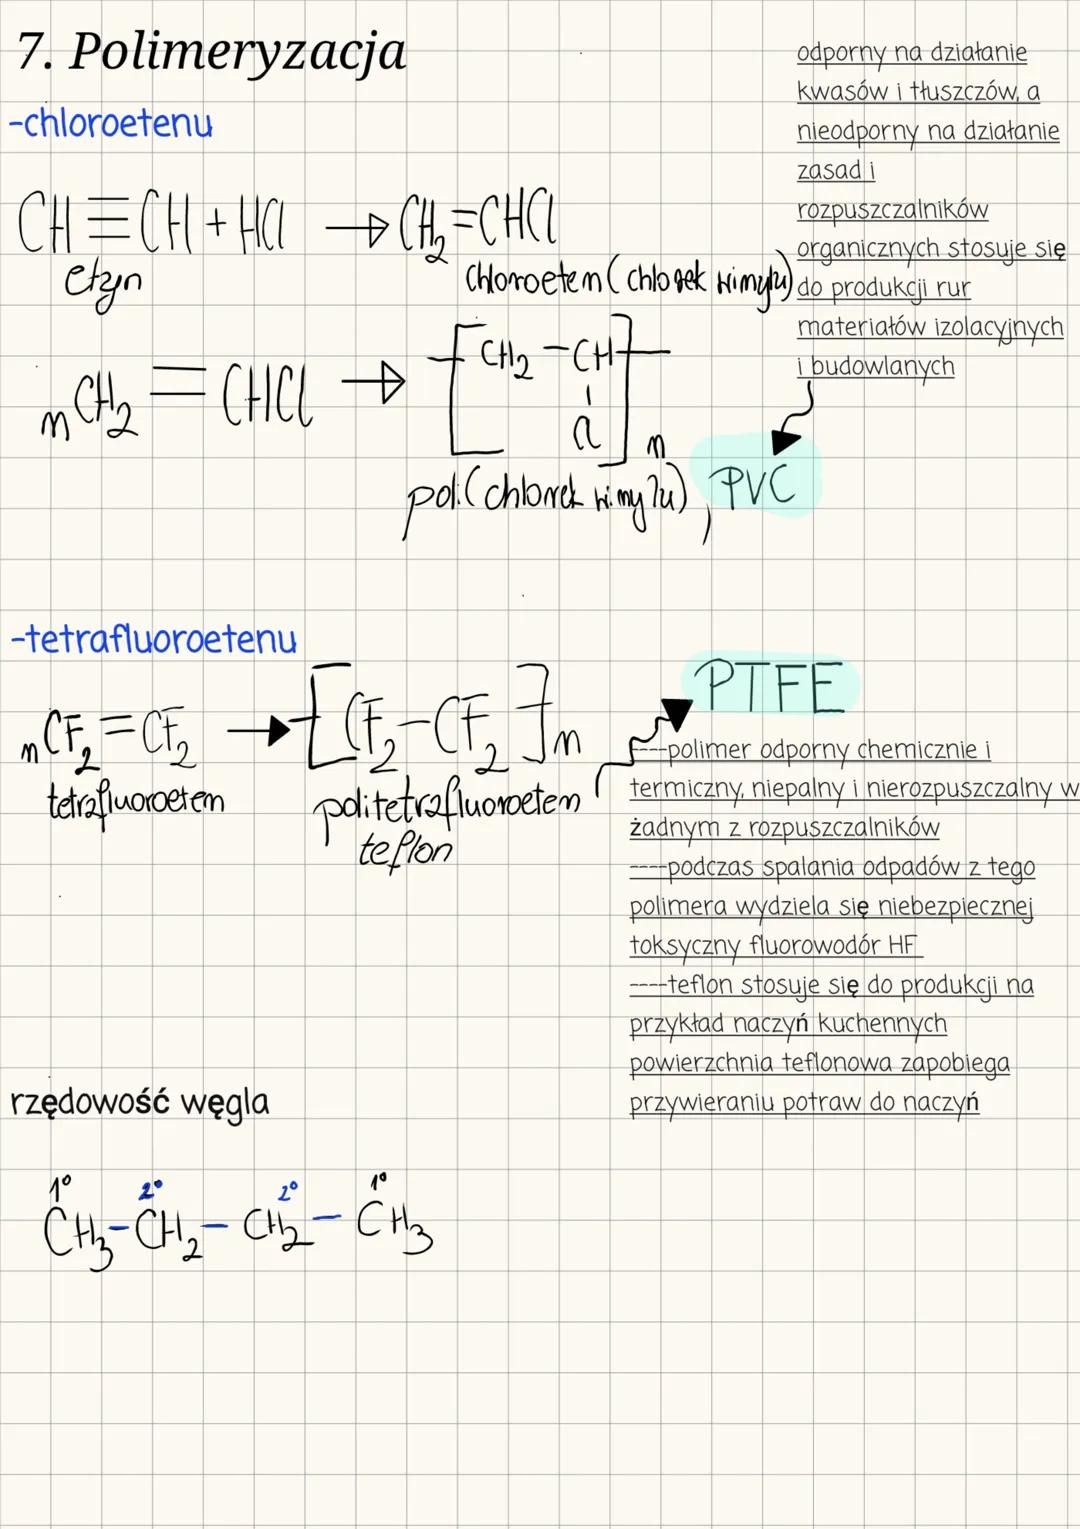 7. Polimeryzacja
-chloroetenu
CH≡CH + HCl → CH₂=CHCl
etyn
chloroeten (chlorek winylu)
nCH₂ = CHCl → [CH₂ - CH]n
Cl
poli(chlorek winylu), PVC
odporny na działanie
kwasów i tłuszczów, a
nieodporny na działanie
zasad i
rozpuszczalników
organicznych stosuje się
do produkcji rur
materiałów izolacyjnych
i budowlanych
-tetrafluoroetenu
nCF₂=CF₂ → [CF₂-CF₂]n
tetrafluoroeten
politetrafluoroeten
teflon
PTFE
----polimer odporny chemicznie i
termiczny, niepalny i nierozpuszczalny w
żadnym z rozpuszczalników
----podczas spalania odpadów z tego
polimera wydziela się niebezpiecznej
toksyczny fluorowodór HF
----teflon stosuje się do produkcji na
przykład naczyń kuchennych
powierzchnia teflonowa zapobiega
przywieraniu potraw do naczyń
rzędowość węgla
1° 2° 2° 1°
CH₃-CH₂-CH₂-CH₃